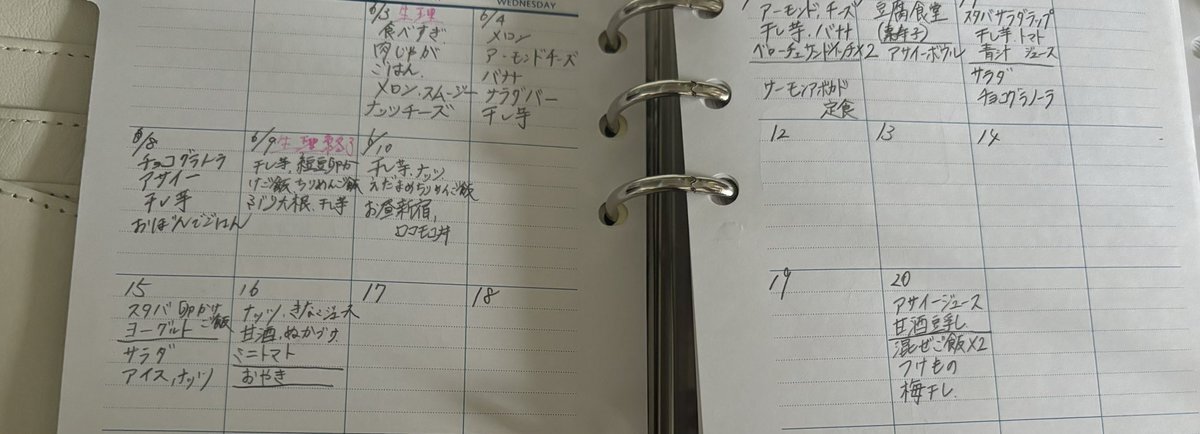 WEDNESDAY
6/3 生理
食べすぎ
肉じゃが
ごはん、
メロン、スムージー
ナッツチーズ
6/4
メロン
アーモンドチーズ
バナナ
サラダバー
干し芋
6/8
チョコグラノラ
アサイー
干し芋
おぼんでごはん
6/9 生理
干し芋、納豆卵か
けご飯、ちりめんご飯
大根、干し芋
6/10
干し芋、ナッツ
えだまめちりめんご飯
お昼新宿、
ロコモコ丼
15
スタバ 卵かけ
ヨーグルト ご飯
サラダ
アイス、ナッツ
16
ナッツ、きなこジュース
甘酒、ぬかづけ
ミニトマト
おやき
17
18
アーモンド、チーズ
干し芋、バナナ
ベローチェサンドイッチ×2
サーモンアボカド
定食
豆腐食堂
アサイーボウル
スタバサラダラップ
干し芋トマト
青汁 ジュース
サラダ
チョコグラノーラ
12
13
14
19
20
アサイージュース
甘酒豆乳
混ぜご飯×2
つけもの
梅干し